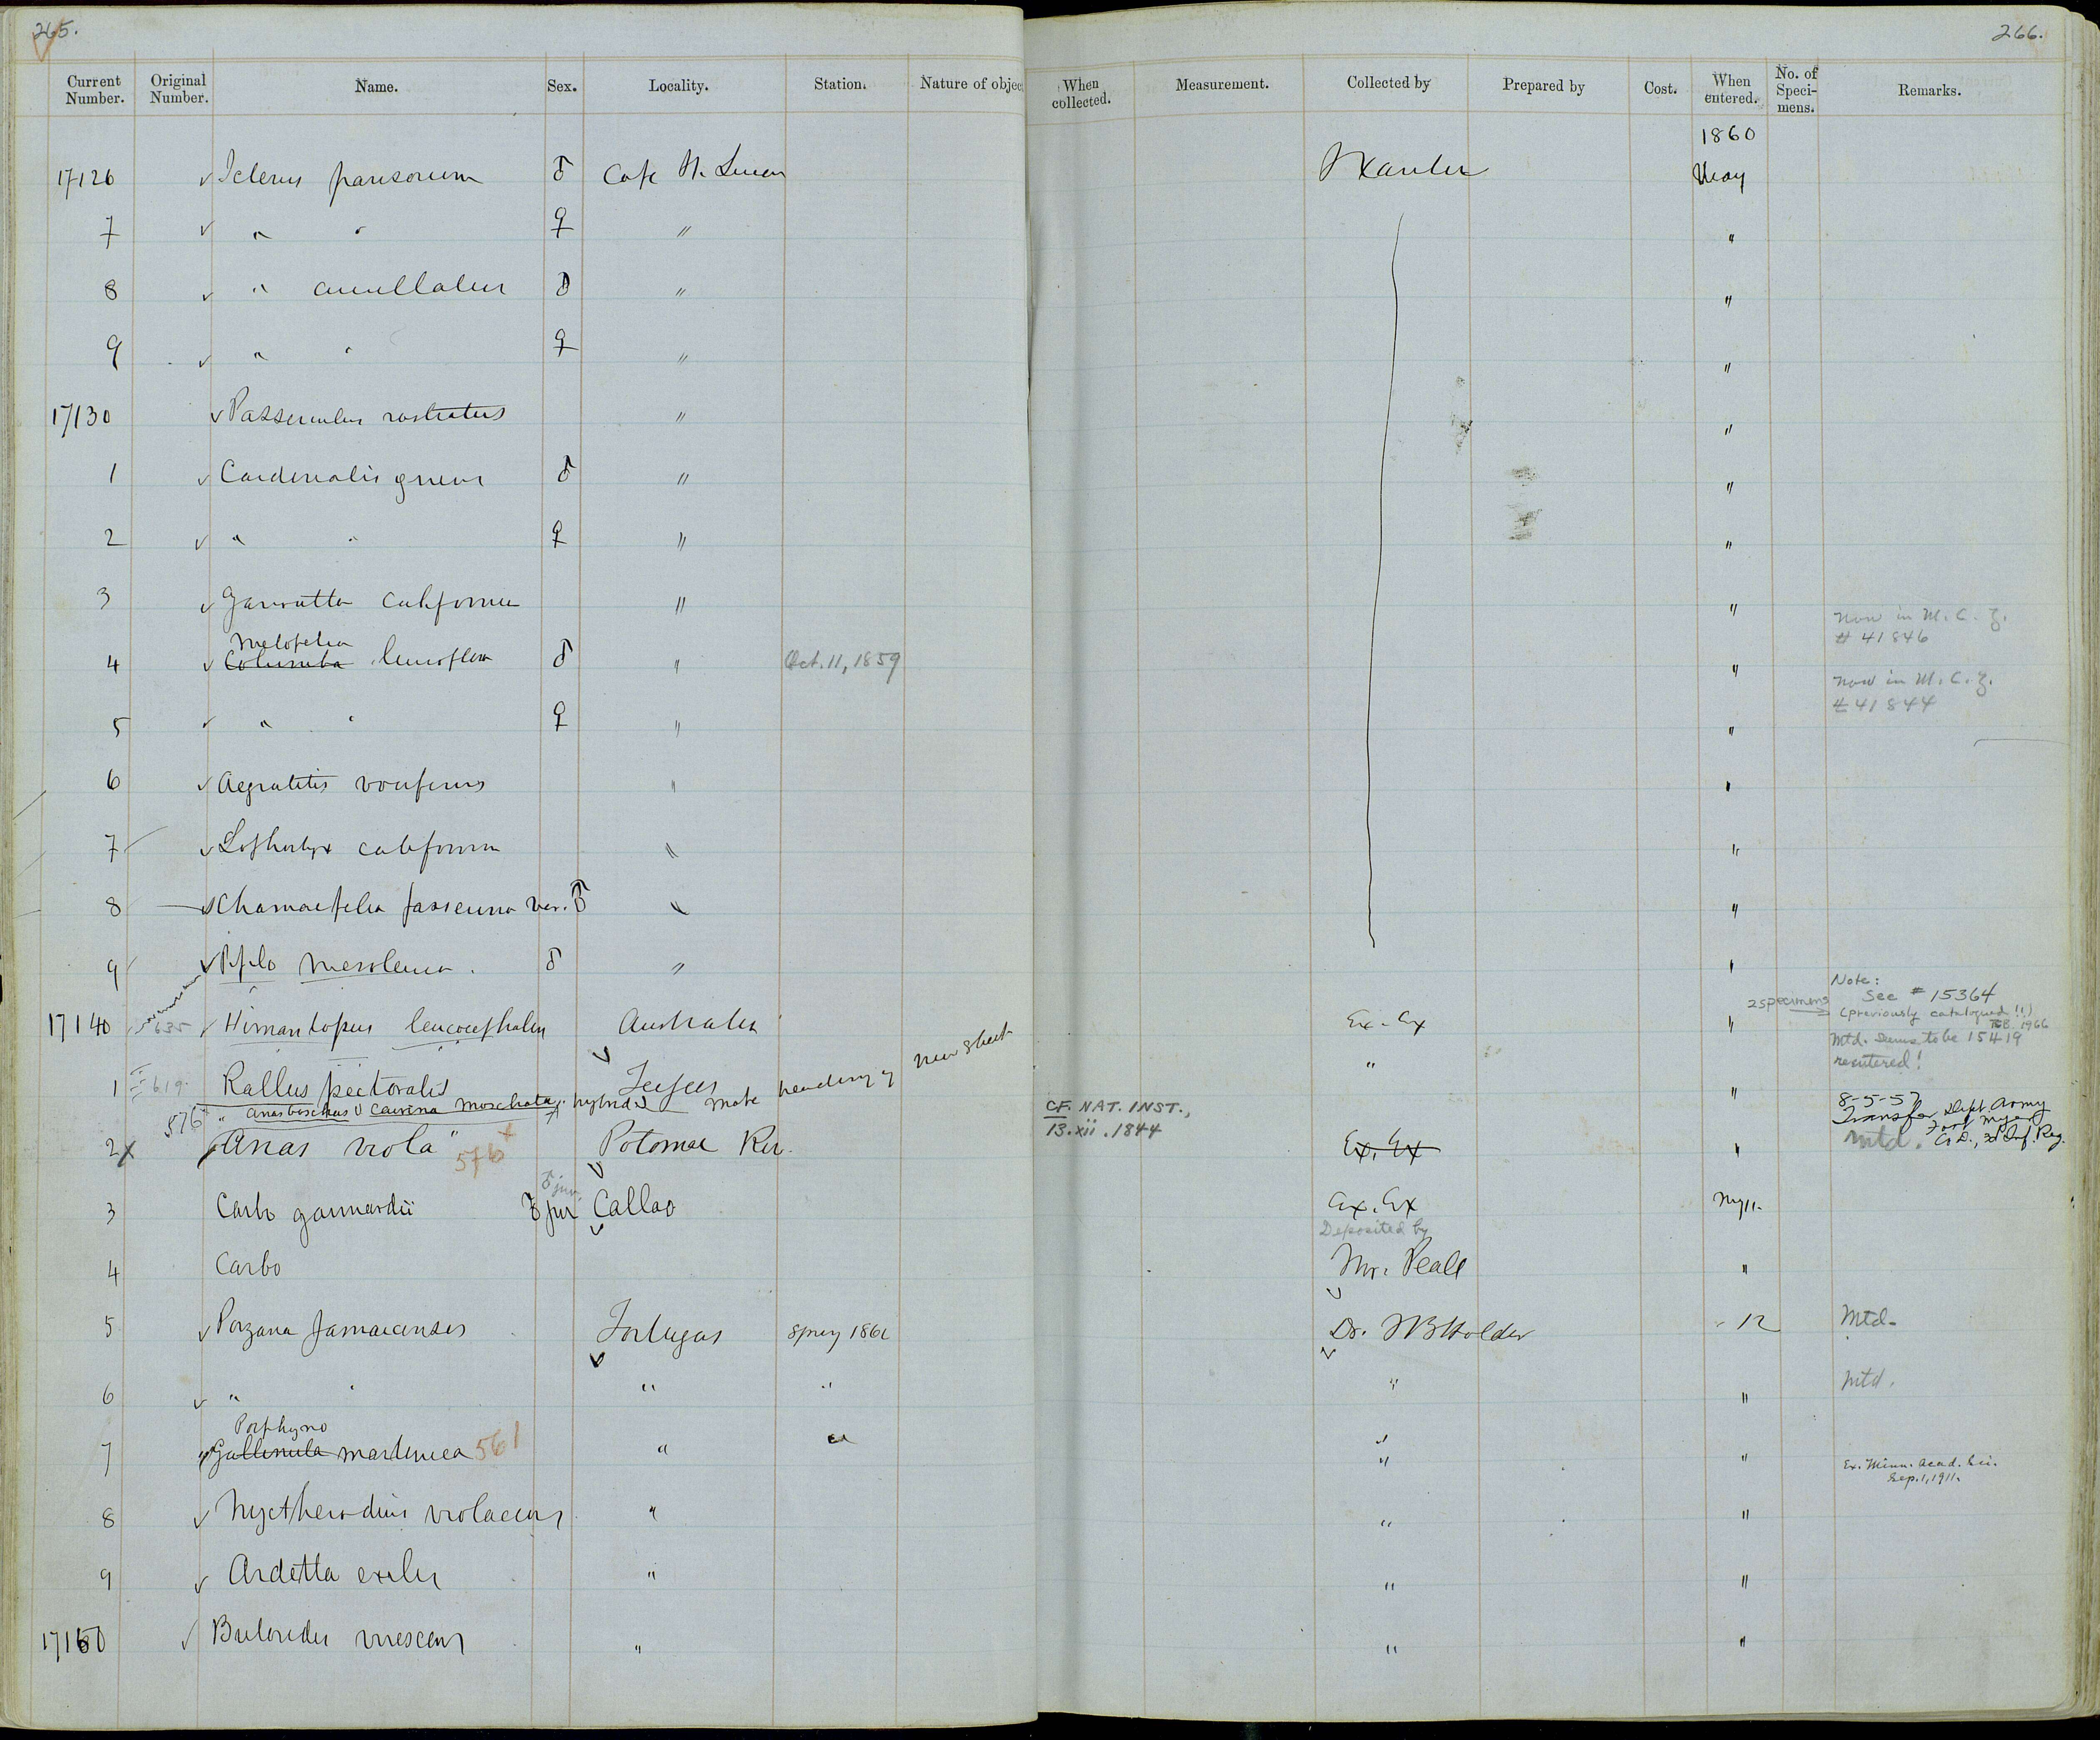 265.
266.
Current Number. Original Number. Name. Sex. Locality. Station. Nature of objec When collected. Measurement. Collected by Prepared by Cost. When entered. No. of Speci-mens. Remarks.
1860
17126 ✓ Icterus parisorum ♂ Cape St. Lucas J Xantus May
7 ✓ " " ♀ " "
8 ✓ " cucullatus ♂ " "
9 ✓ " " ♀ " "
17130 ✓ Passerculus rostratus " "
1 ✓ Cardinalis ♂ " "
2 ✓ " " ♀ " "
3 ✓ " " Now in M. C. Z.
# 41846
Melopelia
4 ✓ Columba leucoptera ♂ " Oct. 11, 1859 " Now in M. C. Z.
# 41844
5 ✓ " " ♀ " "
6 ✓ Aegialitis vociferus " "
7 ✓ Lophortyx californica " "
8 ✓ Chamaepelia passerina var. ♂ " "
9 ✓ Pipilo mesoleucus. ♂ " "
Note:
See # 15364
17140 635 ✓ Himantopus leucocephalus Australia Ex. Ex " 2 specimens (previously catalogued !!)
1966
Mtd. Seems to be 15419
reentered!
1 619. Rallus pectoralis " "
576 " Anas boschas ♀ Cairina moschata ♂ hybrid make heading of new sheet
CF. NAT. INST.,
13.xii.1844
8-5-57
Transfer Dept. Army
2 X "Anas viola" 576 Potomac Riv. Ex. Ex " Mtd.
♂ juv.
3 Carbo gaimardii ♂ juv Callao Ex. Ex My 11.
Deposited by
4 Carbo Mr. Peale "
5 ✓ Porzana Jamaicensis Tortugas Dr. J B Holder " 12 Mtd.
6 ✓ " " " " " " Mtd.
Porphyrio
7 ✓ Gallinula martinica 561 " " " " Ex. Minn. Acad. Sci.
Sep. 1, 1911.
8 ✓ Nyctherodius violaceus " " "
9 ✓ Ardetta exilis " " "
17150 ✓ Butorides virescens " " "